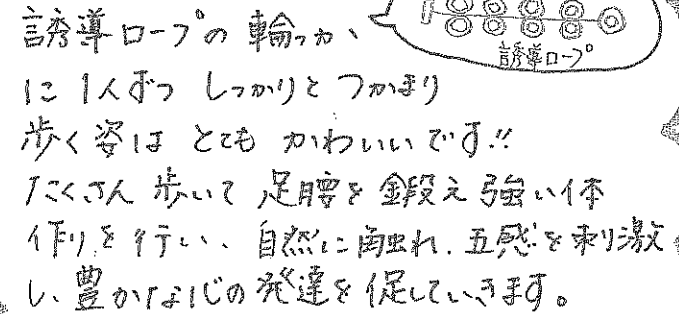 誘導ロープ
誘導ロープの輪っか、
に1人ずつ しっかりと つかまり
歩く姿は とても かわいいです!!
たくさん 歩いて 足腰を 鍛え 強い体
作りを行い、自然に触れ、五感を刺激
し、豊かな心の発達を促していきます。